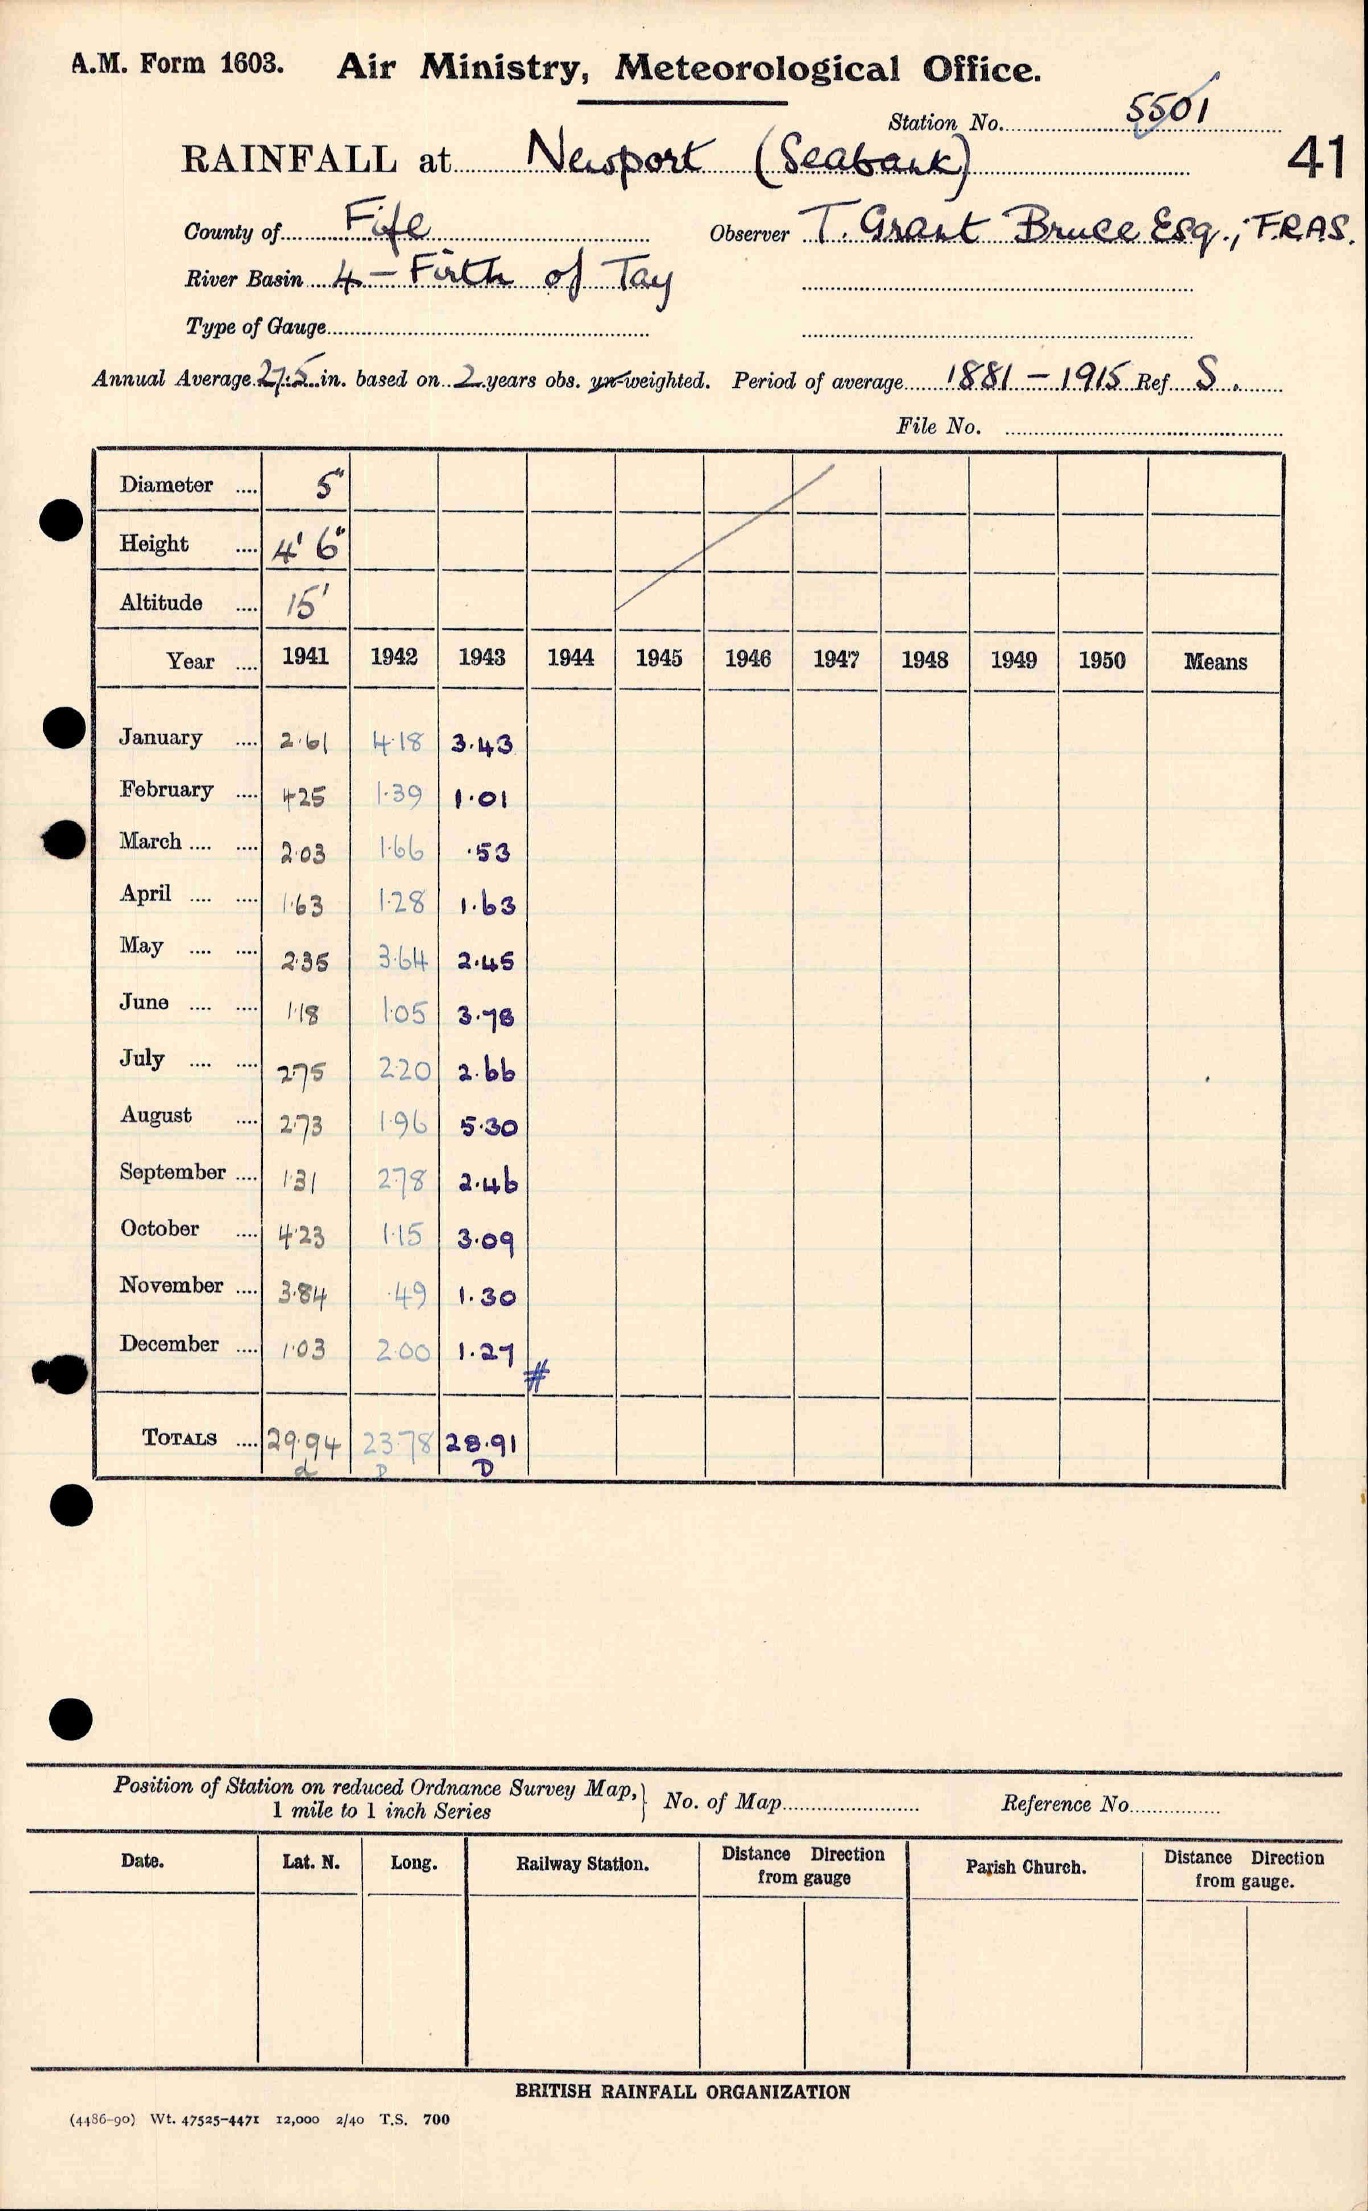 A.M. Form 1603. Air Ministry, Meteorological Office.
Station No. 5501
RAINFALL at Newport (Seabank)
41
County of Fife Observer T. Grant Bruce Esq., F.R.A.S.
River Basin 4 – Firth of Tay
Type of Gauge
Annual Average 27.5 in. based on 2 years obs. un-weighted. Period of average 1881 – 1915 Ref S.
File No.
Diameter .... 5"
Height .... 4' 6"
Altitude .... 15'
Year .... 1941 1942 1943 1944 1945 1946 1947 1948 1949 1950 Means
January .... 2.61 4.18 3.43
February .... 4.25 1.39 1.01
March .... .... 2.03 1.66 .53
April .... .... 1.63 1.28 1.63
May .... .... 2.35 3.64 2.45
June .... .... 1.18 1.05 3.78
July .... .... 2.75 2.20 2.66
August .... 2.73 1.96 5.30
September .... 1.31 2.78 2.46
October .... 4.23 1.15 3.09
November .... 3.84 .49 1.30
December .... 1.03 2.00 1.27
#
TOTALS .... 29.94 23.78 28.91
d D D
Position of Station on reduced Ordnance Survey Map, } No. of Map Reference No.
1 mile to 1 inch Series
Date. Lat. N. Long. Railway Station. Distance Direction from gauge Parish Church. Distance Direction from gauge.
BRITISH RAINFALL ORGANIZATION
(4486-90) Wt. 47525-4471 12,000 2/40 T.S. 700